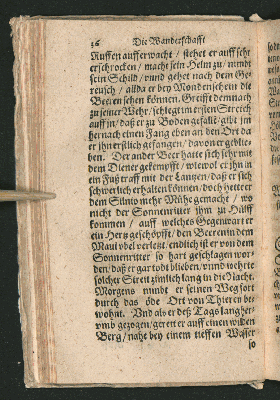 36 Die Wanderschafft
Ruffen auff erwacht / stehet er auff sehr
erschrocken / macht sein Helm zu / nimbt
sein Schild / vnnd gehet nach dem Ge-
reusch / allda er bey Mondenschein die
Beeren sehen können. Greifft demnach
zu seiner Wehr / schlegt im ersten Streich
auff in / daß er zu Boden gefallt / gibt jm
hernach einen Fang eben an den Ort da
er ihn erstlich gefangen / davon er geblie-
ben. Der ander Beer hatte sich sehr mit
dem Diener gekempffe / wiewol er ihn in
ein Fuß traff mit der Lantzen / daß er sich
schwerlich erhalten können / doch hette er
dem Silvio mehr Mühe gemacht / wo
nicht der Sonnenritter ihm zu Hülff
kommen / auff welchts Gegenwart er
ein Hertz geschöpfft / den Beeren in dem
Maul vbel verletzt, endlich ist er von dem
Sonnenritter so hart geschlagen wor-
den / daß er gar todt blieben / vnnd wehrte
solcher Streit zimlich lang in die Nacht.
Morgens nimbt er seinen Weg fort
durch das öde Ort von Thieren be-
wohnt. Vnd als er deß Tags lang her-
umb gezogen / gerent er auff einen wilden
Berg / nahe bey einem tieffen Wasser
so